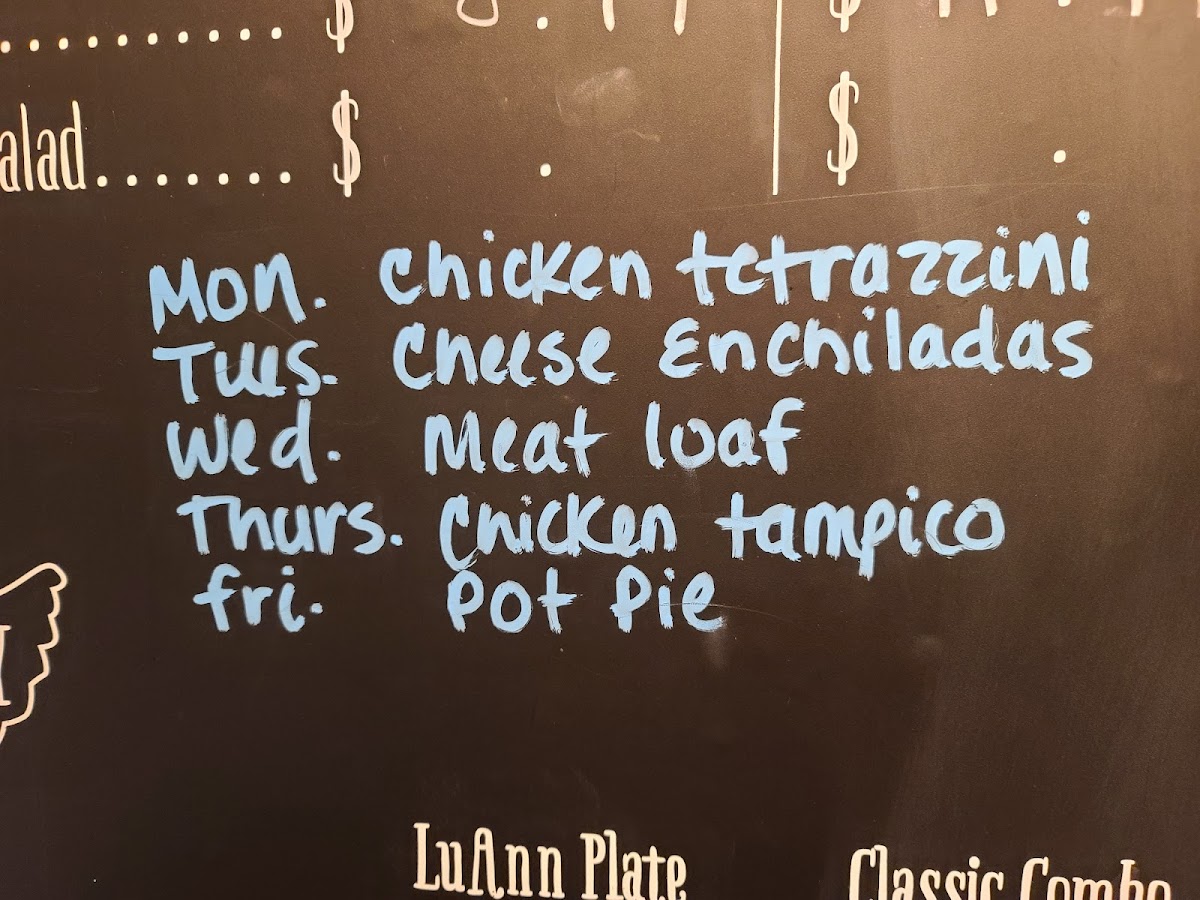 .......... $ .
alad....... $ . $ .
Mon. Chicken tetrazzini
Tues. Cheese Enchiladas
Wed. Meat loaf
Thurs. Chicken tampico
fri. Pot Pie
LuAnn Plate Classic Combo